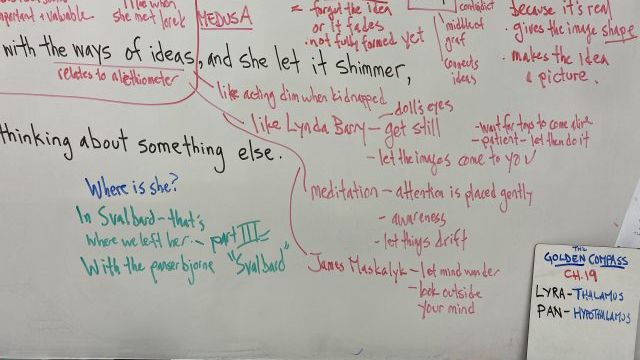 important + valuable.
like when
she met Iorek
MEDUSA
= forgot the idea
or it fades
. not fully formed yet
contradict
middle of
graf
connects
ideas
because it's real
. gives the image shape
. makes the idea
a picture.
with the ways of ideas, and she let it shimmer,
relates to alethiometer
like acting dim when kidnapped
thinking about something else.
like Lynda Barry - get still
doll's eyes
- wait for toys to come alive
- patient - let them do it
- let the images come to you
meditation - attention is placed gently
- awareness
- let things drift
James Maskalyk - let mind wander
- look outside
your mind
Where is she?
In Svalbard - that's
where we left her -- part III
With the panserbjorne "Svalbard"
THE
GOLDEN COMPASS
CH. 19
LYRA - THALAMUS
PAN - HYPOTHALAMUS